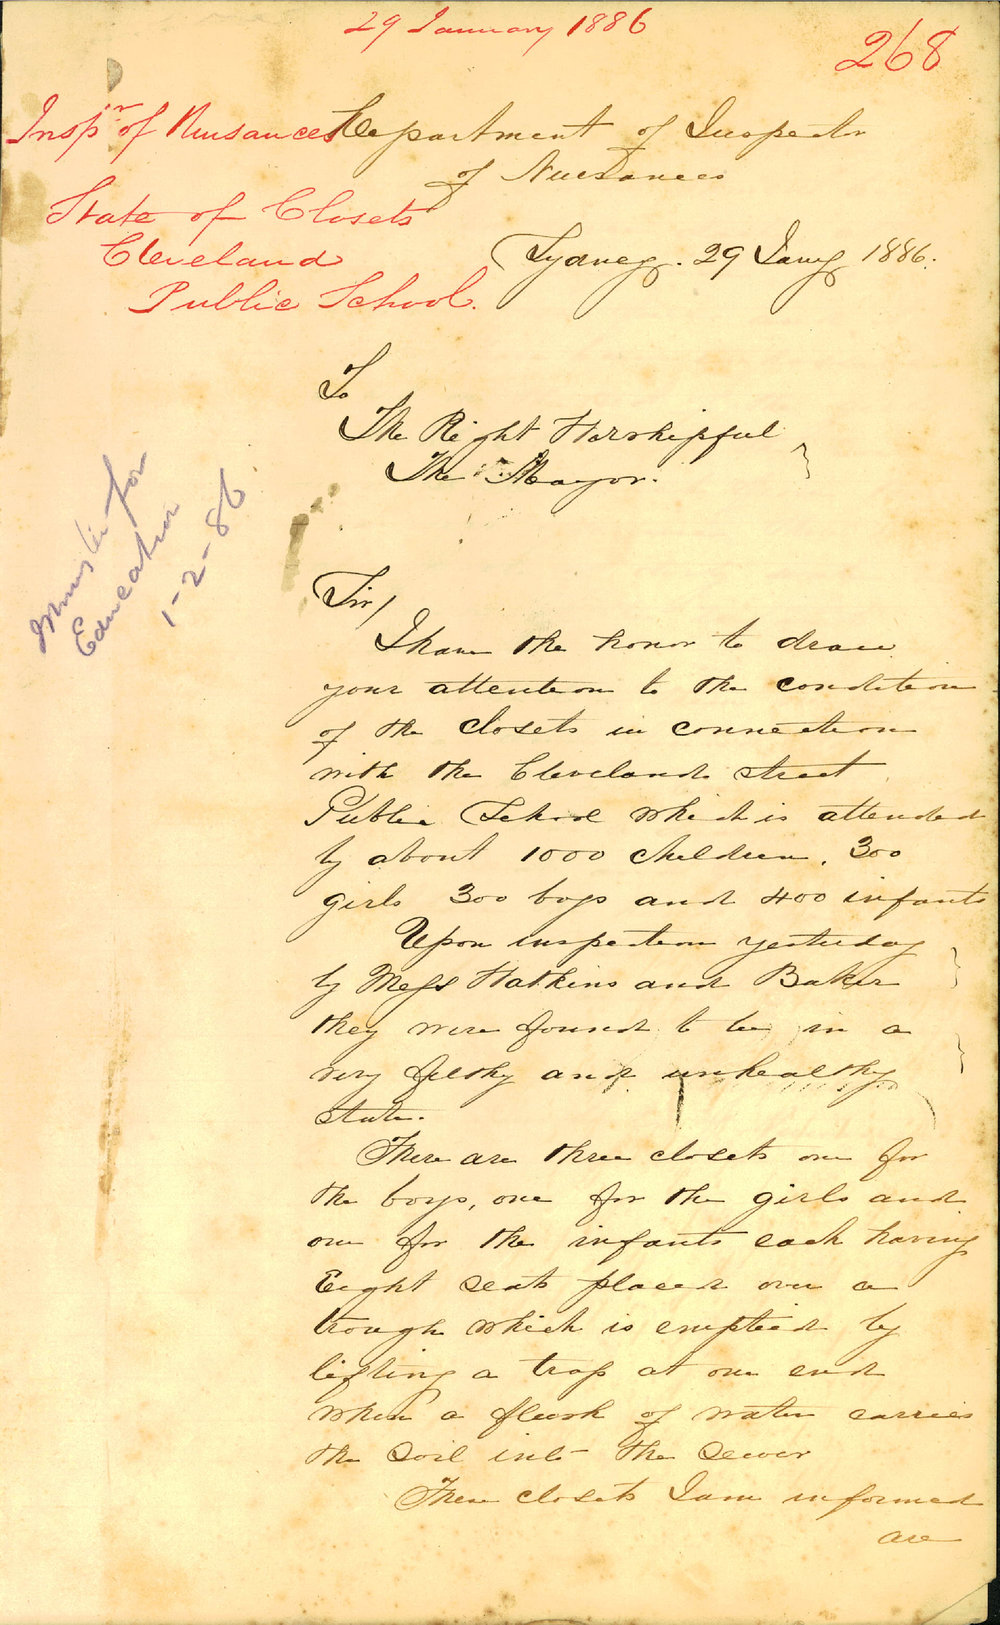 29 January 1886
268
Inspr of Nuisances
State of Closets
Cleveland
Public School.
Department of Inspector
of Nuisances
Sydney. 29 Jany 1886.
To
The Right Worshipful
The Mayor.
Minister for
Education
1-2-86.
Sir/
I have the honor to draw
your attention to the condition
of the closets in connection
with the Cleveland street
Public School which is attended
by about 1000 children, 300
girls 300 boys and 400 infants
Upon inspection yesterday
by Mess and Baker
they were found to be in a
very filthy and unhealthy
state.
There are three closets one for
the boys, one for the girls and
one for the infants each having
Eight seats placed over a
trough which is emptied by
lifting a trap at one end
when a flush of water carries
the soil into the sewer
These closets I am informed
are